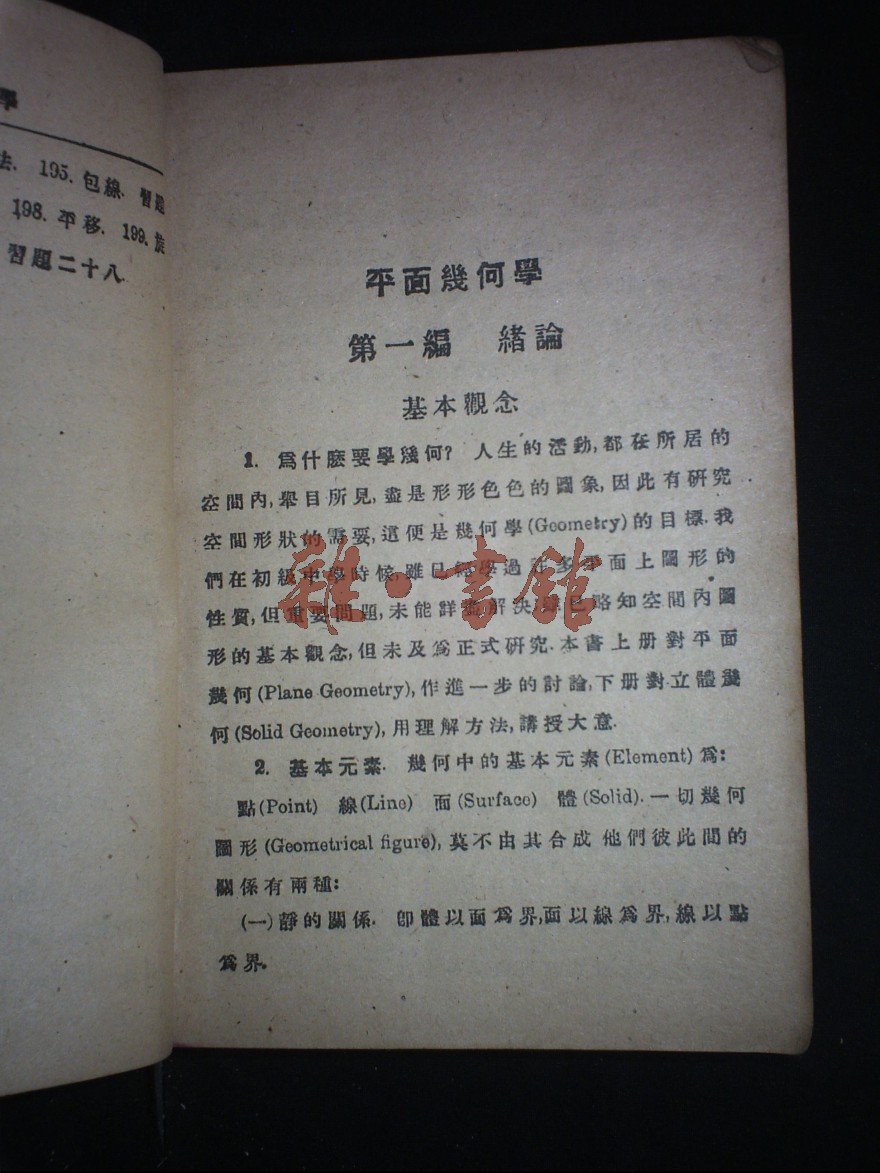 學
法. 195. 包線. 習題
198. 平移. 199. 旋
習題二十八
平面幾何學
第一編 緒論
基本觀念
1. 爲什麽要學幾何? 人生的活動,都在所居的
空間內,舉目所見,盡是形形色色的圖象,因此有研究
空間形狀的需要,這便是幾何學(Geometry)的目標.我
們在初級中學時候,雖已經學過許多平面上圖形的
性質,但重要問題,未能詳盡解決,雖已略知空間內圖
形的基本觀念,但未及爲正式研究.本書上册對平面
幾何(Plane Geometry),作進一步的討論,下册對立體幾
何(Solid Geometry),用理解方法,講授大意.
2. 基本元素. 幾何中的基本元素(Element)爲:
點(Point) 線(Line) 面(Surface) 體(Solid).一切幾何
圖形(Geometrical figure),莫不由其合成 他們彼此間的
關係有兩種:
(一)靜的關係. 卽體以面爲界,面以線爲界,線以點
爲界.
雜·書館